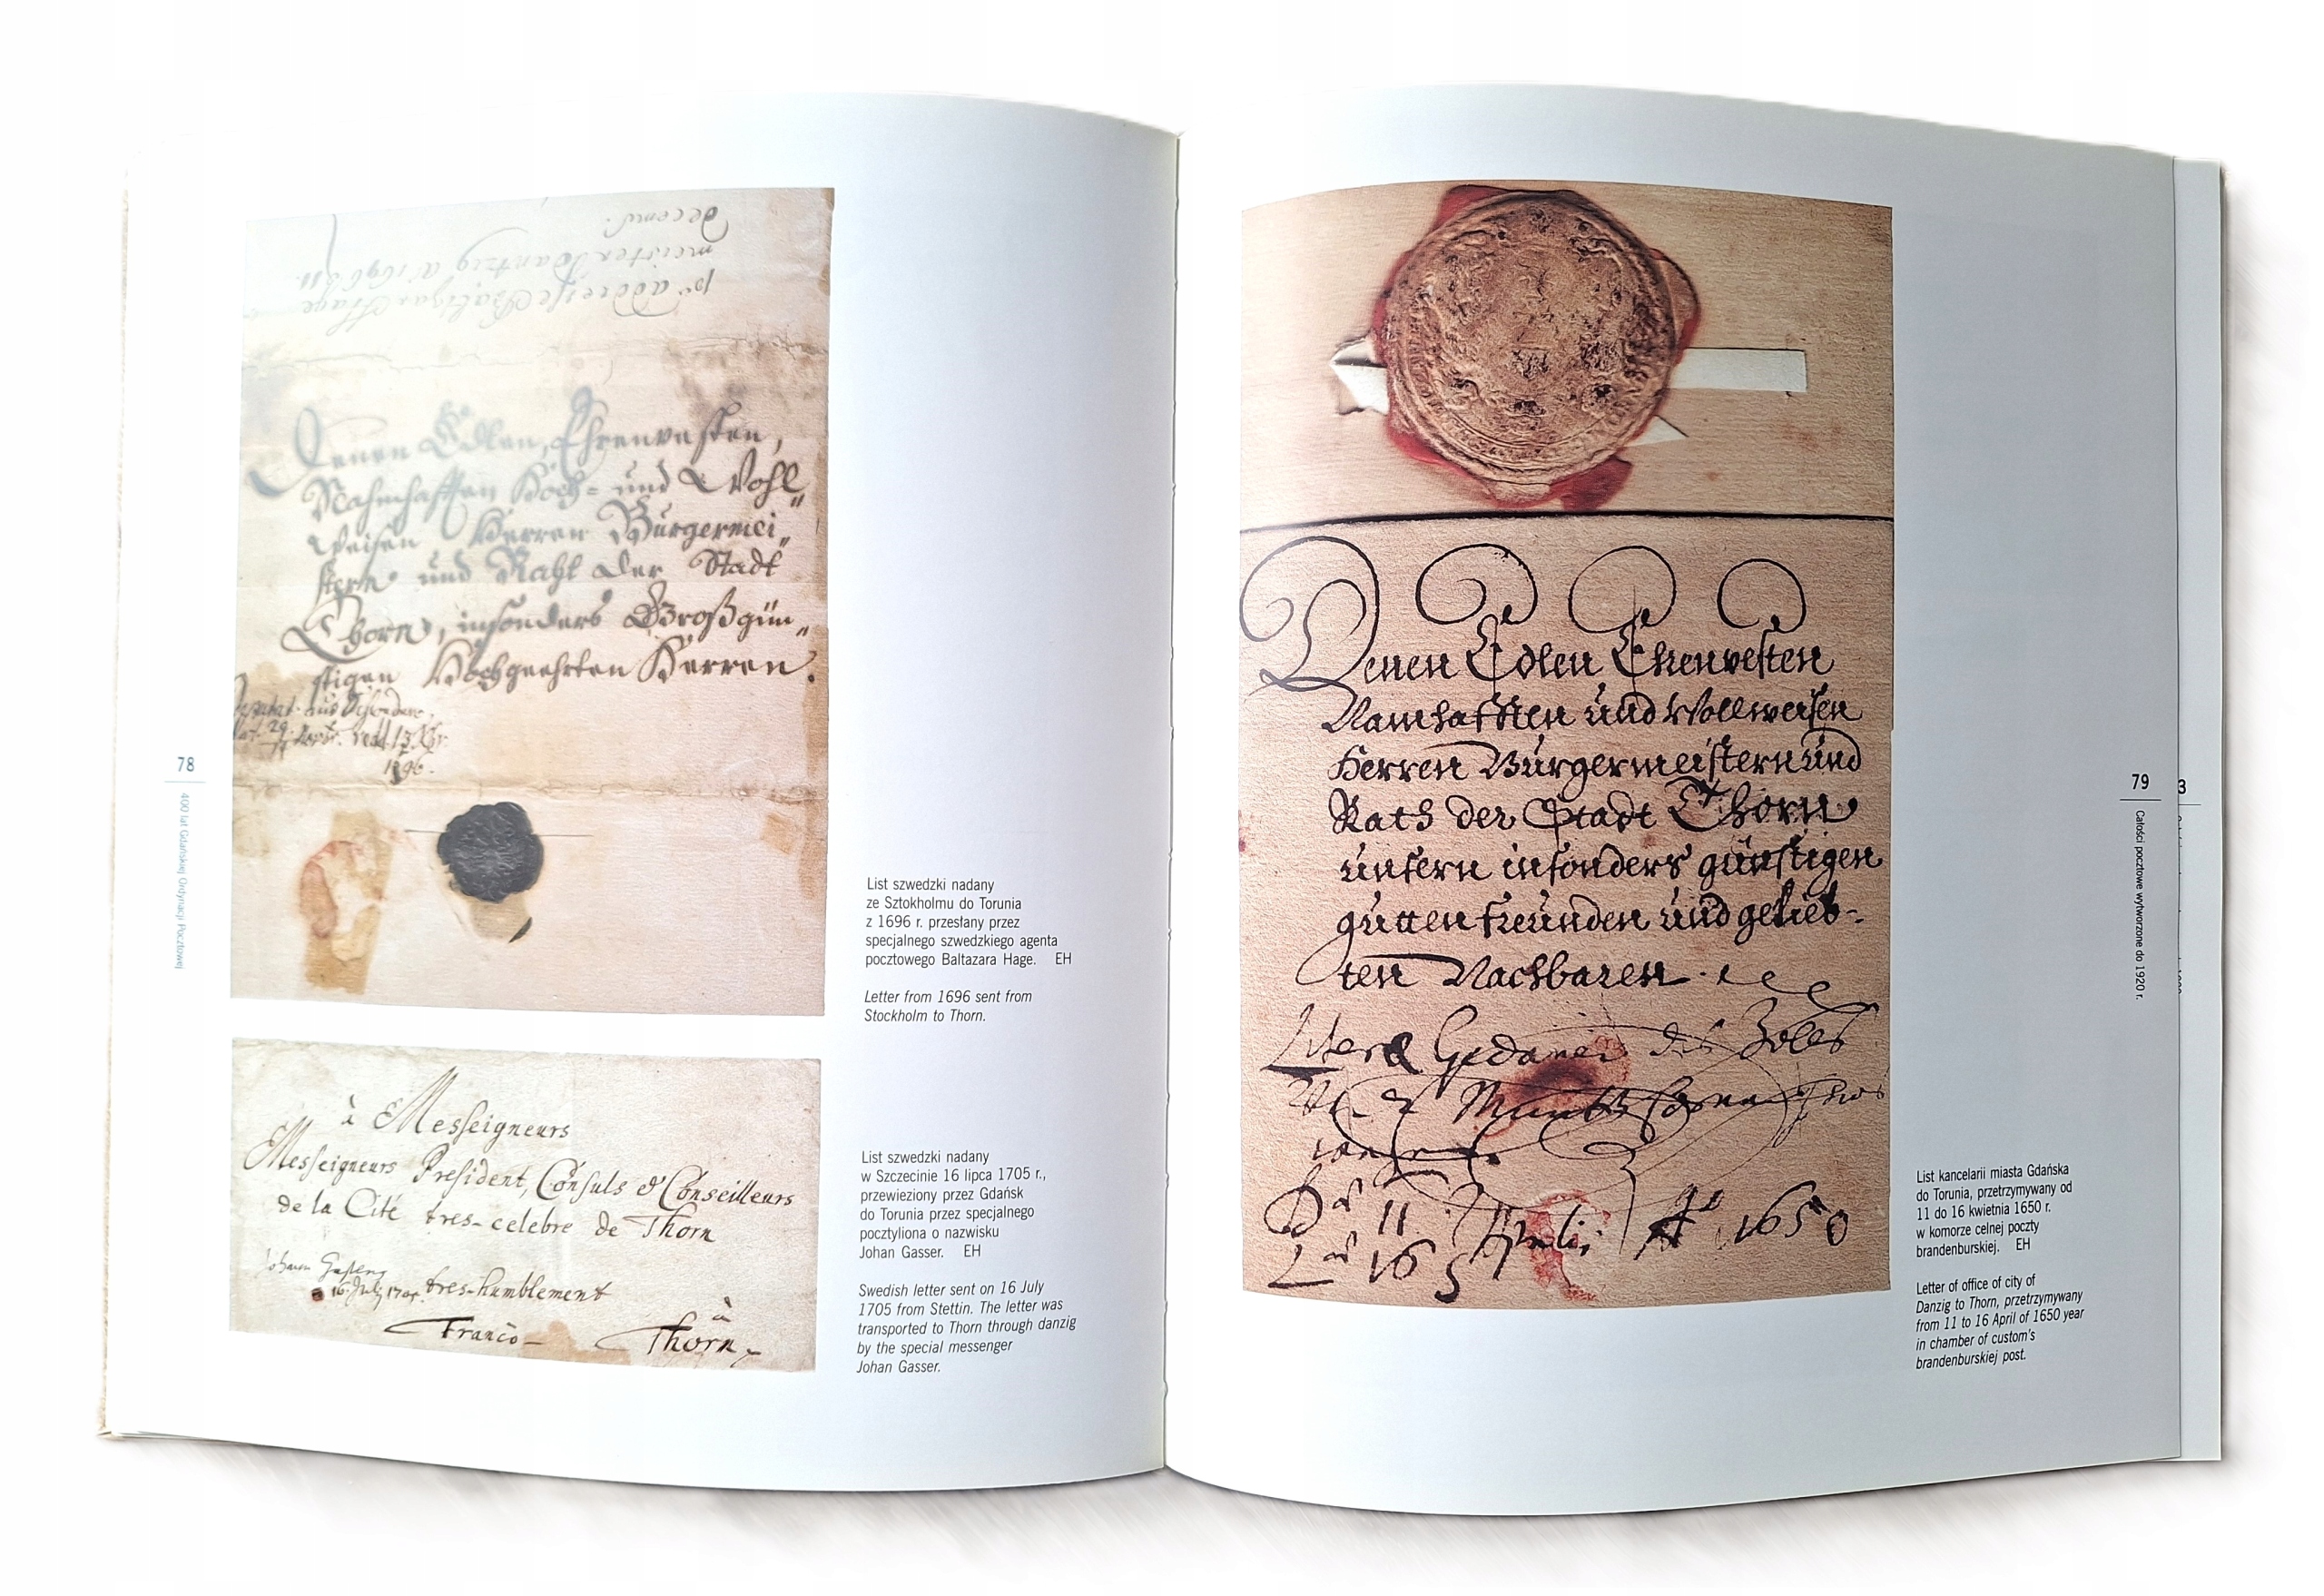 pr addresse Baltzar Hage
meister Dantzig a 1696 d 11.
decemb.
Denen Edlen, Ehrenvesten,
Nahmhafften Hoch- und Wohl„
weisen Herren Bürgermei„
stern und Raht der Stadt
Thorn, insonders Großgün„
stigen Hochgeehrten Herren.
aus Schweden
29
1696.
à Messeigneurs
Messeigneurs President, Consuls & Conseilleurs
de la Cité tres-celebre de Thorn
Johann
16 July 1705. tres-humblement
à
Franco Thorn
78
400 lat Gdańskiej Ordynacji Pocztowej
List szwedzki nadany
ze Sztokholmu do Torunia
z 1696 r. przesłany przez
specjalnego szwedzkiego agenta
pocztowego Baltazara Hage. EH
Letter from 1696 sent from
Stockholm to Thorn.
List szwedzki nadany
w Szczecinie 16 lipca 1705 r.,
przewieziony przez Gdańsk
do Torunia przez specjalnego
pocztyliona o nazwisku
Johan Gasser. EH
Swedish letter sent on 16 July
1705 from Stettin. The letter was
transported to Thorn through danzig
by the special messenger
Johan Gasser.
Denen Edlen Ehrenvesten
Namhafften und Wollweisen
Herren Bürgermeistern und
Rath der Stadt Thorn
unsern insonders günstigen
gutten freunden und gelieb-
ten Nachbaren.
Litera Gedanen des Zolles
Müntz
11
16 Aprilis Ao 1650
List kancelarii miasta Gdańska
do Torunia, przetrzymywany od
11 do 16 kwietnia 1650 r.
w komorze celnej poczty
brandenburskiej. EH
Letter of office of city of
Danzig to Thorn, przetrzymywany
from 11 to 16 April of 1650 year
in chamber of custom's
brandenburskiej post.
79
Całości pocztowe wytworzone do 1920 r.
3